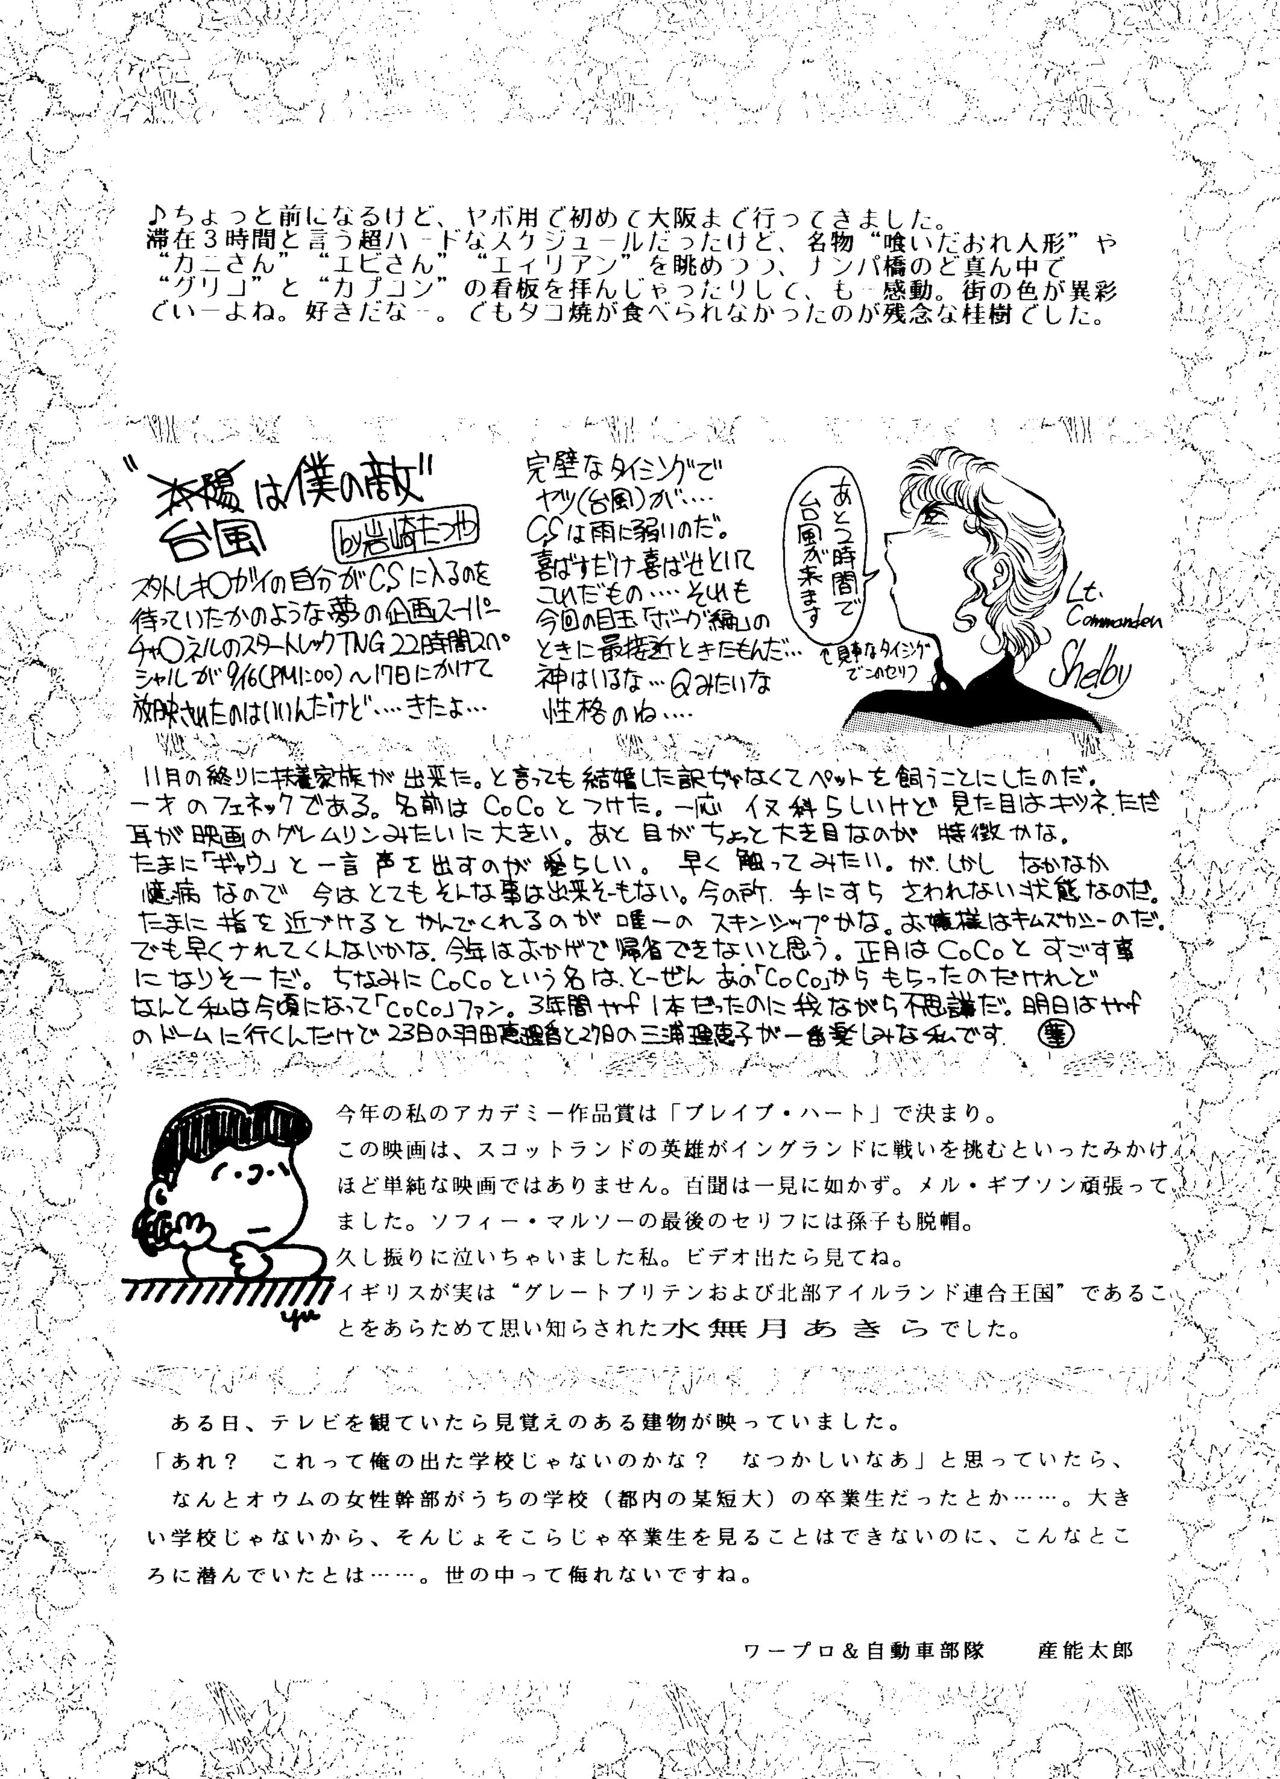 ♪ちょっと前になるけど、ヤボ用で初めて大阪まで行ってきました。
滞在3時間と言う超ハードなスケジュールだったけど、名物“喰いだおれ人形”や
“カニさん”“エビさん”“エィリアン”を眺めつつ、ナンパ橋のど真ん中で
“グリコ”と“カプコン”の看板を拝んじゃったりして、も一感動。街の色が異彩
でいーよね。好きだなー。でもタコ焼が食べられなかったのが残念な桂樹でした。
“太陽は僕の敵”
台風
by岩崎たつや
スタトレキ〇ガイの自分がCSに入るのを
待っていたかのような夢の企画スーパー
チャ〇ネルのスタートレックTNG22時間スペ
シャルが9/16(PM1:00)～17日にかけて
放映されたのはいいんだけど‥‥きたよ…
完璧なタイミングで
ヤツ(台風)が‥‥
CSは雨に弱いのだ。
喜ばすだけ喜ばせといて
これだもの‥‥それも
今回の目玉「ボーグ編」の
ときに最接近ときたもんだ…
神はいるな…Qみたいな
性格のね‥‥
あと2時間で
台風が来ます
見事なタイミング
でこのセリフ
Lt.
Commander
Shelby
11月の終りに扶養家族が出来た。と言っても結婚した訳ぢゃなくてペットを飼うことにしたのだ。
一才のフェネックである。名前はCoCoとつけた。一応イヌ科らしいけど見た目はキツネ。ただ
耳が映画のグレムリンみたいに大きい。あと目がちょっと大き目なのが特徴かな。
たまに「ギャウ」と一言声を出すのが愛らしい。早く触ってみたい。が、しかしなかなか
憶病なので今はとてもそんな事は出来そーもない。今の所、手にすらさわれない状態なのだ。
たまに指を近づけるとかんでくれるのが唯一のスキンシップかな。お嬢様はキムズカシーのだ。
でも早くナれてくんないかな。今年はおかげで帰省できないと思う。正月はCoCoとすごす事
になりそーだ。ちなみにCoCoという名は、とーぜんあの「CoCo」からもらったのだけれど
なんと私は今頃になって「CoCo」ファン。3年間ゃf1本だったのに我ながら不思議だ。明日はゃf
のドームに行くんだけで23日の羽田恵理香と27日の三浦理恵子が一番楽しみな私です。
今年の私のアカデミー作品賞は「ブレイブ・ハート」で決まり。
この映画は、スコットランドの英雄がイングランドに戦いを挑むといったみかけ
ほど単純な映画ではありません。百聞は一見に如かず。メル・ギブソン頑張って
ました。ソフィー・マルソーの最後のセリフには孫子も脱帽。
久し振りに泣いちゃいました私。ビデオ出たら見てね。
イギリスが実は“グレートブリテンおよび北部アイルランド連合王国”であるこ
とをあらためて思い知らされた水無月あきらでした。
yu
ある日、テレビを観ていたら見覚えのある建物が映っていました。
「あれ？　これって俺の出た学校じゃないのかな？　なつかしいなあ」と思っていたら、
なんとオウムの女性幹部がうちの学校（都内の某短大）の卒業生だったとか……。大き
い学校じゃないから、そんじょそこらじゃ卒業生を見ることはできないのに、こんなとこ
ろに潜んでいたとは……。世の中って侮れないですね。
ワープロ＆自動車部隊　　産能太郎